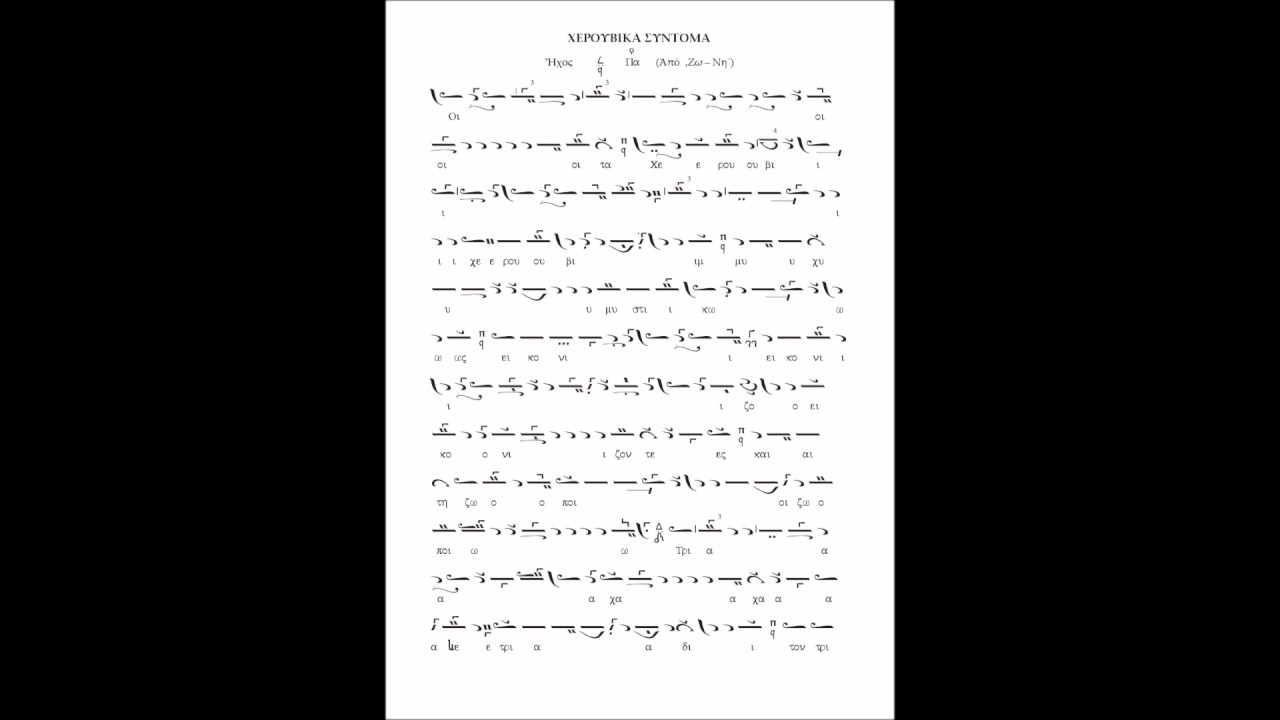 ΧΕΡΟΥΒΙΚΑ ΣΥΝΤΟΜΑ
Ἦχος Πα (Ἀπὸ ͵Ζω – Νη΄)
Οι οι
οι οι τα Χε ε ρου ου βι ι
ι ι
ι ι χε ε ρου ου βι ιμ μυ υ χυ
υ υ μυ στι ι κω ω
ω ως ει κο νι ι ει κο νι ι
ι ι ζο ο ει
κο ο νι ι ζον τε ες και αι
τη ζω ο ο ποι οι ζω ο
ποι ω ω Τρι α α
α α χα α χα α α
α με ε τρι α α δι ι τον τρι